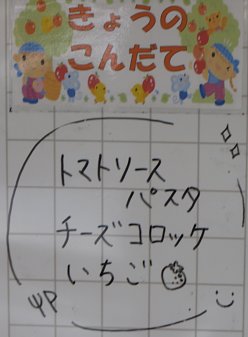 きょうの
こんだて
トマトソース
パスタ
チーズコロッケ
いちご